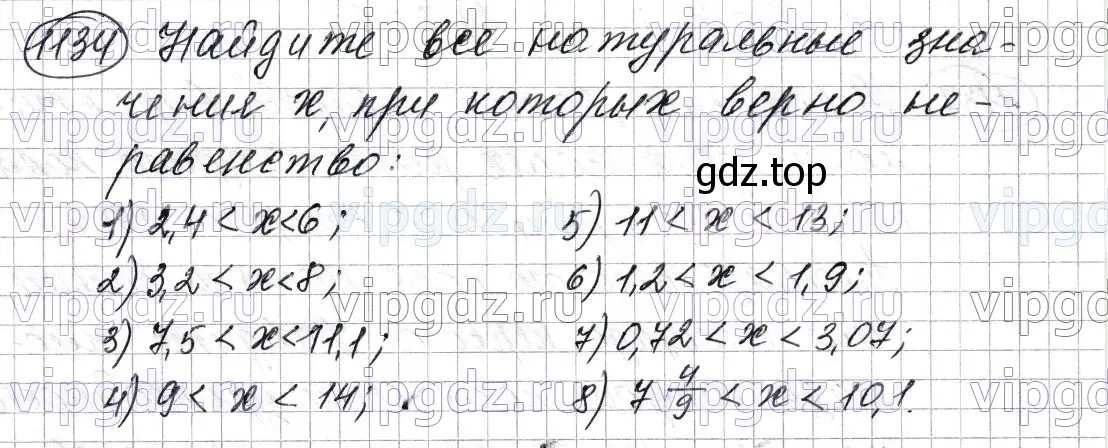 1134 Найдите все натуральные зна-
чения x, при которых верно не-
равенство:
gdz.top
1) 2,4 < x < 6; 5) 11 < x < 13;
2) 3,2 < x < 8; 6) 1,2 < x < 1,9;
3) 7,5 < x < 11,1; 7) 0,72 < x < 3,07;
4) 9 < x < 14; 8) 7 4/9 < x < 10,1.
vipgdz.ru